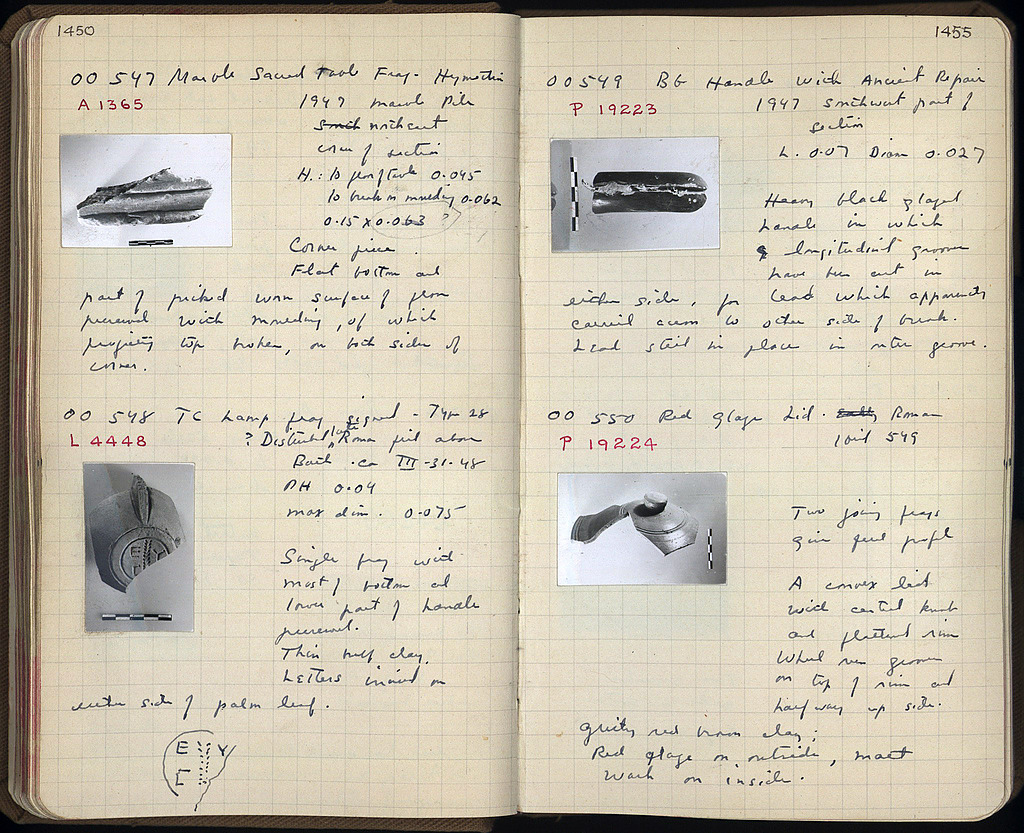 1450
OO 547 Marble Sacred Table Frag. Hymettian
A 1365
1947 marble Pile
S̶m̶i̶t̶h̶ northeast
corner of section
H.: to floor of table 0.045
to break in moulding 0.062
0.15 x 0.063 ?
Corner piece.
Flat bottom and
part of picked worn surface of floor
preserved with moulding, of which
projecting top broken, on both sides of
corner.
OO 548 TC Lamp frag. signed - Type 28
L 4448
? Disturbed late Roman fill above
Bath. ca III-31-48
PH 0.04
max dim. 0.075
Single frag with
most of bottom and
lower part of handle
preserved.
Thin buff clay.
Letters incised on
either side of palm leaf.
E Y
C
1455
OO 549 BG Handle with Ancient Repair
P 19223
1947 Southwest part of
section
L. 0.07 Diam 0.027
Heavy black glazed
handle in which
longitudinal grooves
have been cut in
either side, for lead which apparently
carried across to other side of break.
Lead still in place in outer groove.
OO 550 Red Glaze Lid. Roman
P 19224
549
Two joining frags
give full profile
A convex lid
with central knob
and flattened rim
Wheel run grooves
on top of rim and
halfway up side.
Gritty red brown clay;
Red glaze on outside, matt
wash on inside.